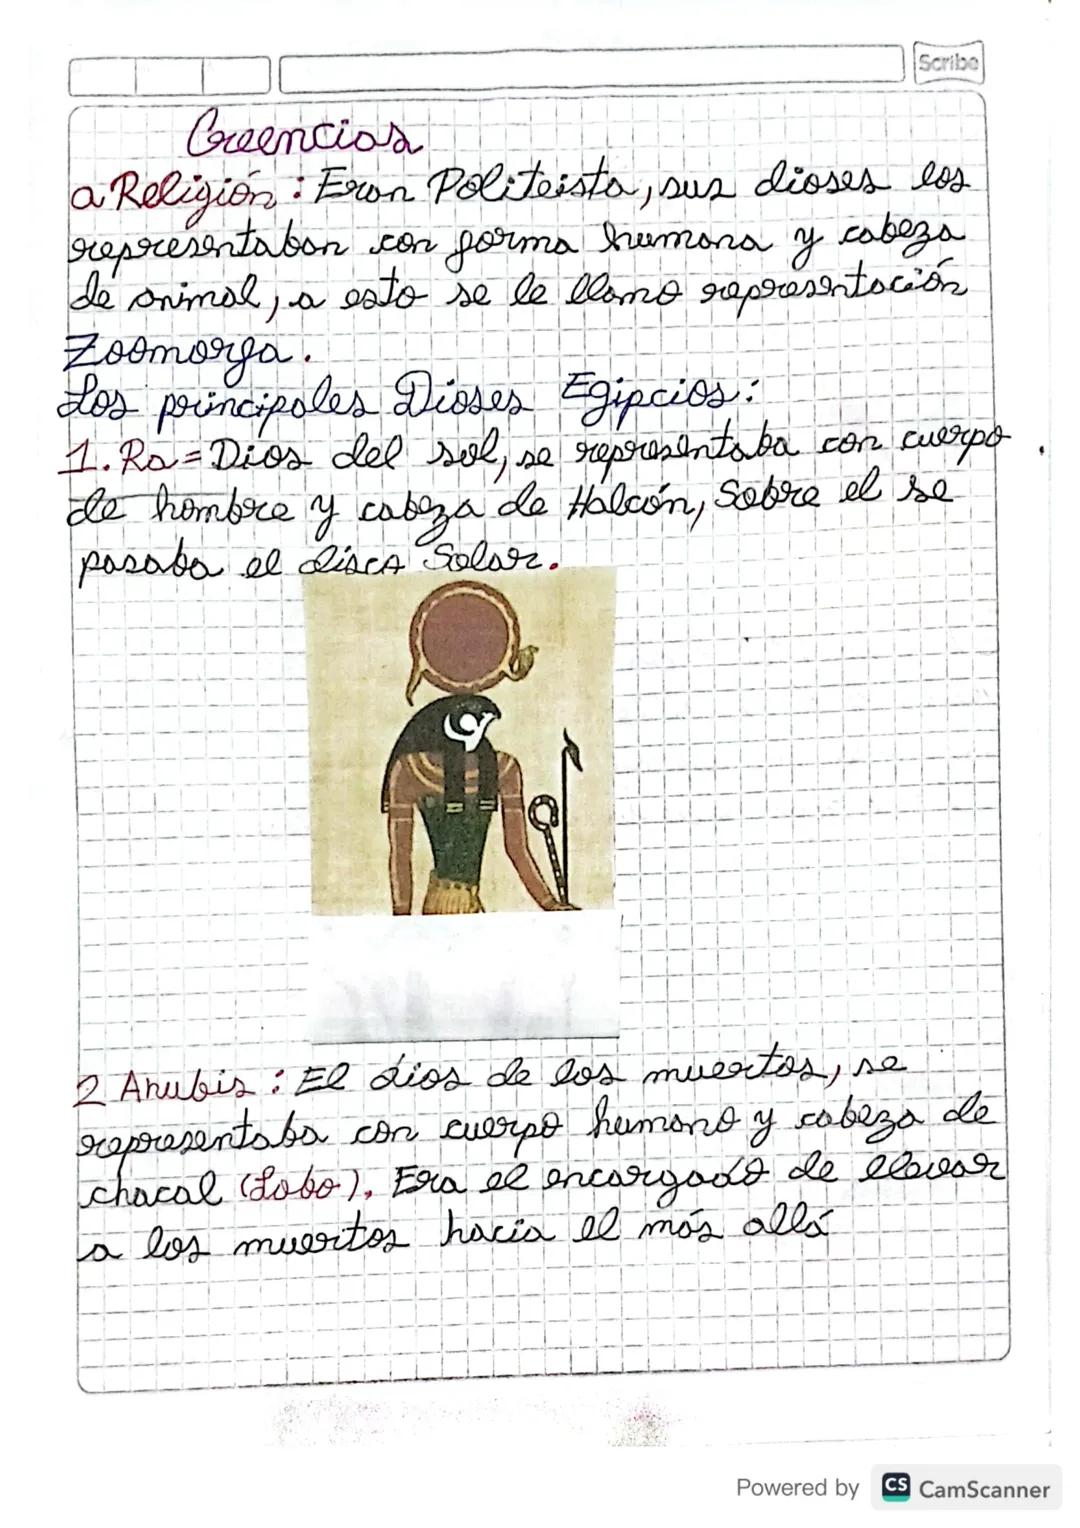 Scribe
Creencias
a Religión: Eran Politeista, sus dioses los
representaban con forma humana y cabeza
de animal, a esto se le llamo representación
Zoomorga.
Los principales Dioses Egipcios:
1. Ra = Dios del sol, se representaba con cuerpo
de hombre y cabeza de Halcón, Sobre el se
pasaba el disca Solar.
2 Anubis: El dios de los muertos, se
representaba con cuerpo humano y cabeza de
chacal (Lobo), Era el encargado de llevar
a los muertos hacia el más allá
Powered by CS CamScanner